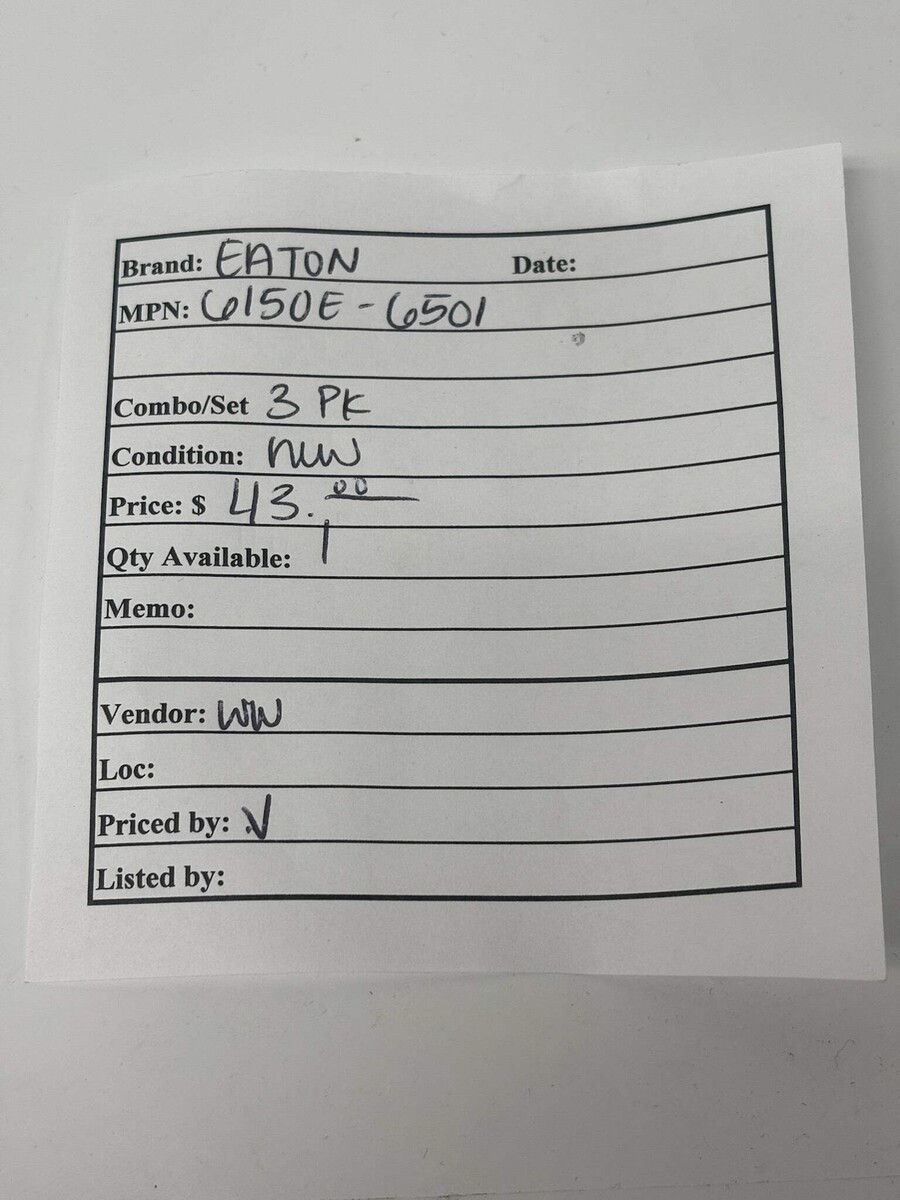 Brand: EATON Date:
MPN: 6150E-6501
Combo/Set 3 PK
Condition: new
Price: $ 43.00
Qty Available: 1
Memo:
Vendor: WW
Loc:
Priced by: V
Listed by: